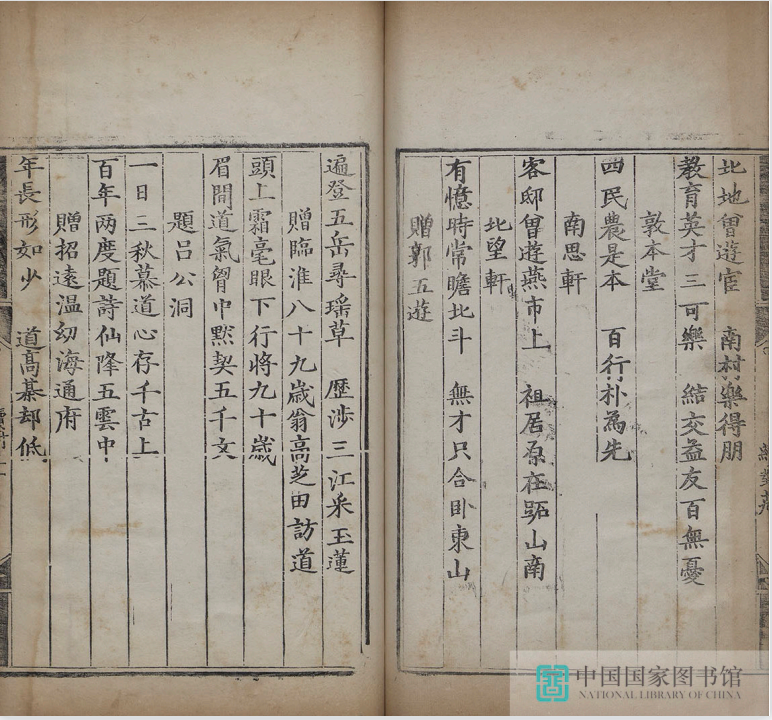 北地曾遊宦　南村樂得朋
教育英才三可樂　結交益友百無憂
敦本堂
四民農是本　百行朴為先
南思軒
客邸曾遊燕市上　祖居原在跖山南
北望軒
有憶時常瞻北斗　無才只合卧東山
贈郭五遊
遍登五岳尋瑤草　歷涉三江采玉蓮
贈臨淮八十九歲翁高芝田訪道
頭上霜毫眼下行將九十歲
眉間道氣胷中黙契五千文
題呂公洞
一日三秋慕道心存千古上
百年两度題詩仙降五雲中
贈招遠溫幼海通府
年長形如少　道高棊却低
中国国家图书馆
NATIONAL LIBRARY OF CHINA